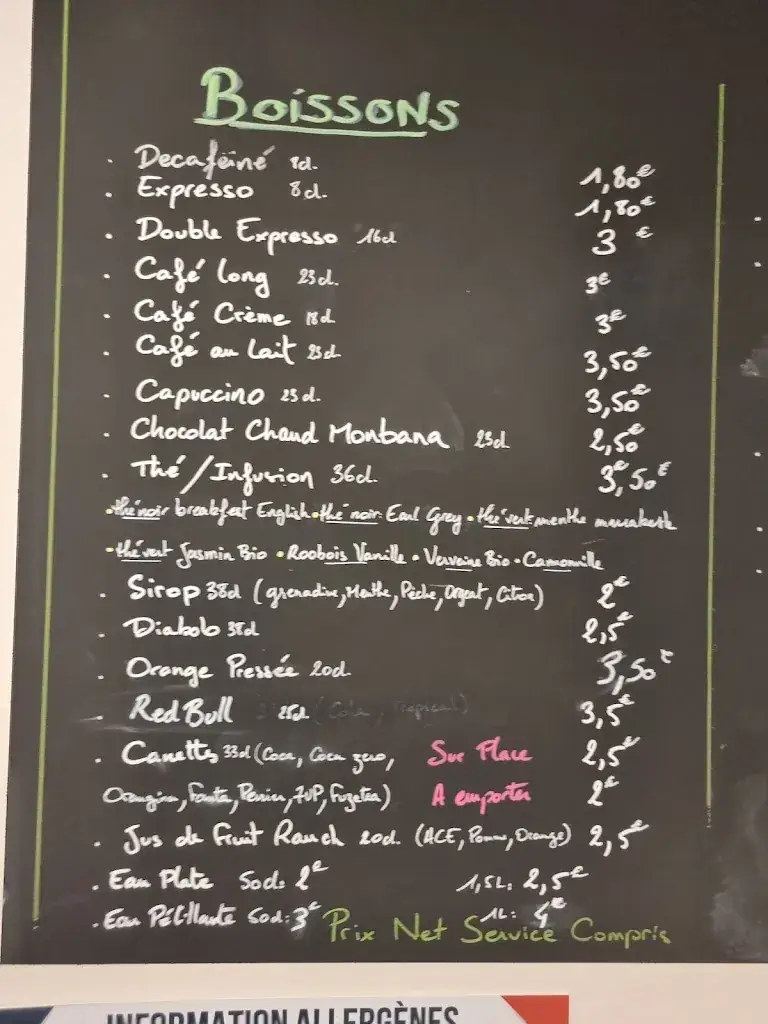 BOISSONS
· Decaféiné 8cl. 1,80€
· Expresso 8cl. 1,80€
· Double Expresso 16cl 3€
· Café long 23cl. 3€
· Café Crème 18cl 3€
· Café au Lait 23cl 3,50€
· Capuccino 23cl. 3,50€
· Chocolat Chaud Monbana 23cl 2,50€
· Thé/Infusion 36cl. 3,50€
• thé noir breakfeet English • thé noir: Earl Grey • thé vert menthe marrakesh
• thé vert Jasmin Bio • Roobois Vanille • Verveine Bio • Camomille
· Sirop 38cl (grenadine, Menthe, Pêche, Orgeat, Citron) 2€
· Diabolo 38cl 2,5€
· Orange Pressée 20cl. 3,50€
· Red Bull 25cl (Cola, Tropical) 3,5€
· Canettes 33cl (Coca, Coca zero, Sur Place 2,5€
Orangina, Fanta, Perrier, 7UP, Fuzetea) A emporter 2€
· Jus de Fruit Rauch 20cl. (ACE, Pomme, Orange) 2,5€
· Eau Plate 50cl: 2€ 1,5L: 2,5€
· Eau Pétillante 50cl: 3€ 1L: 4€
Prix Net Service Compris
INFORMATION ALLERGÈNES